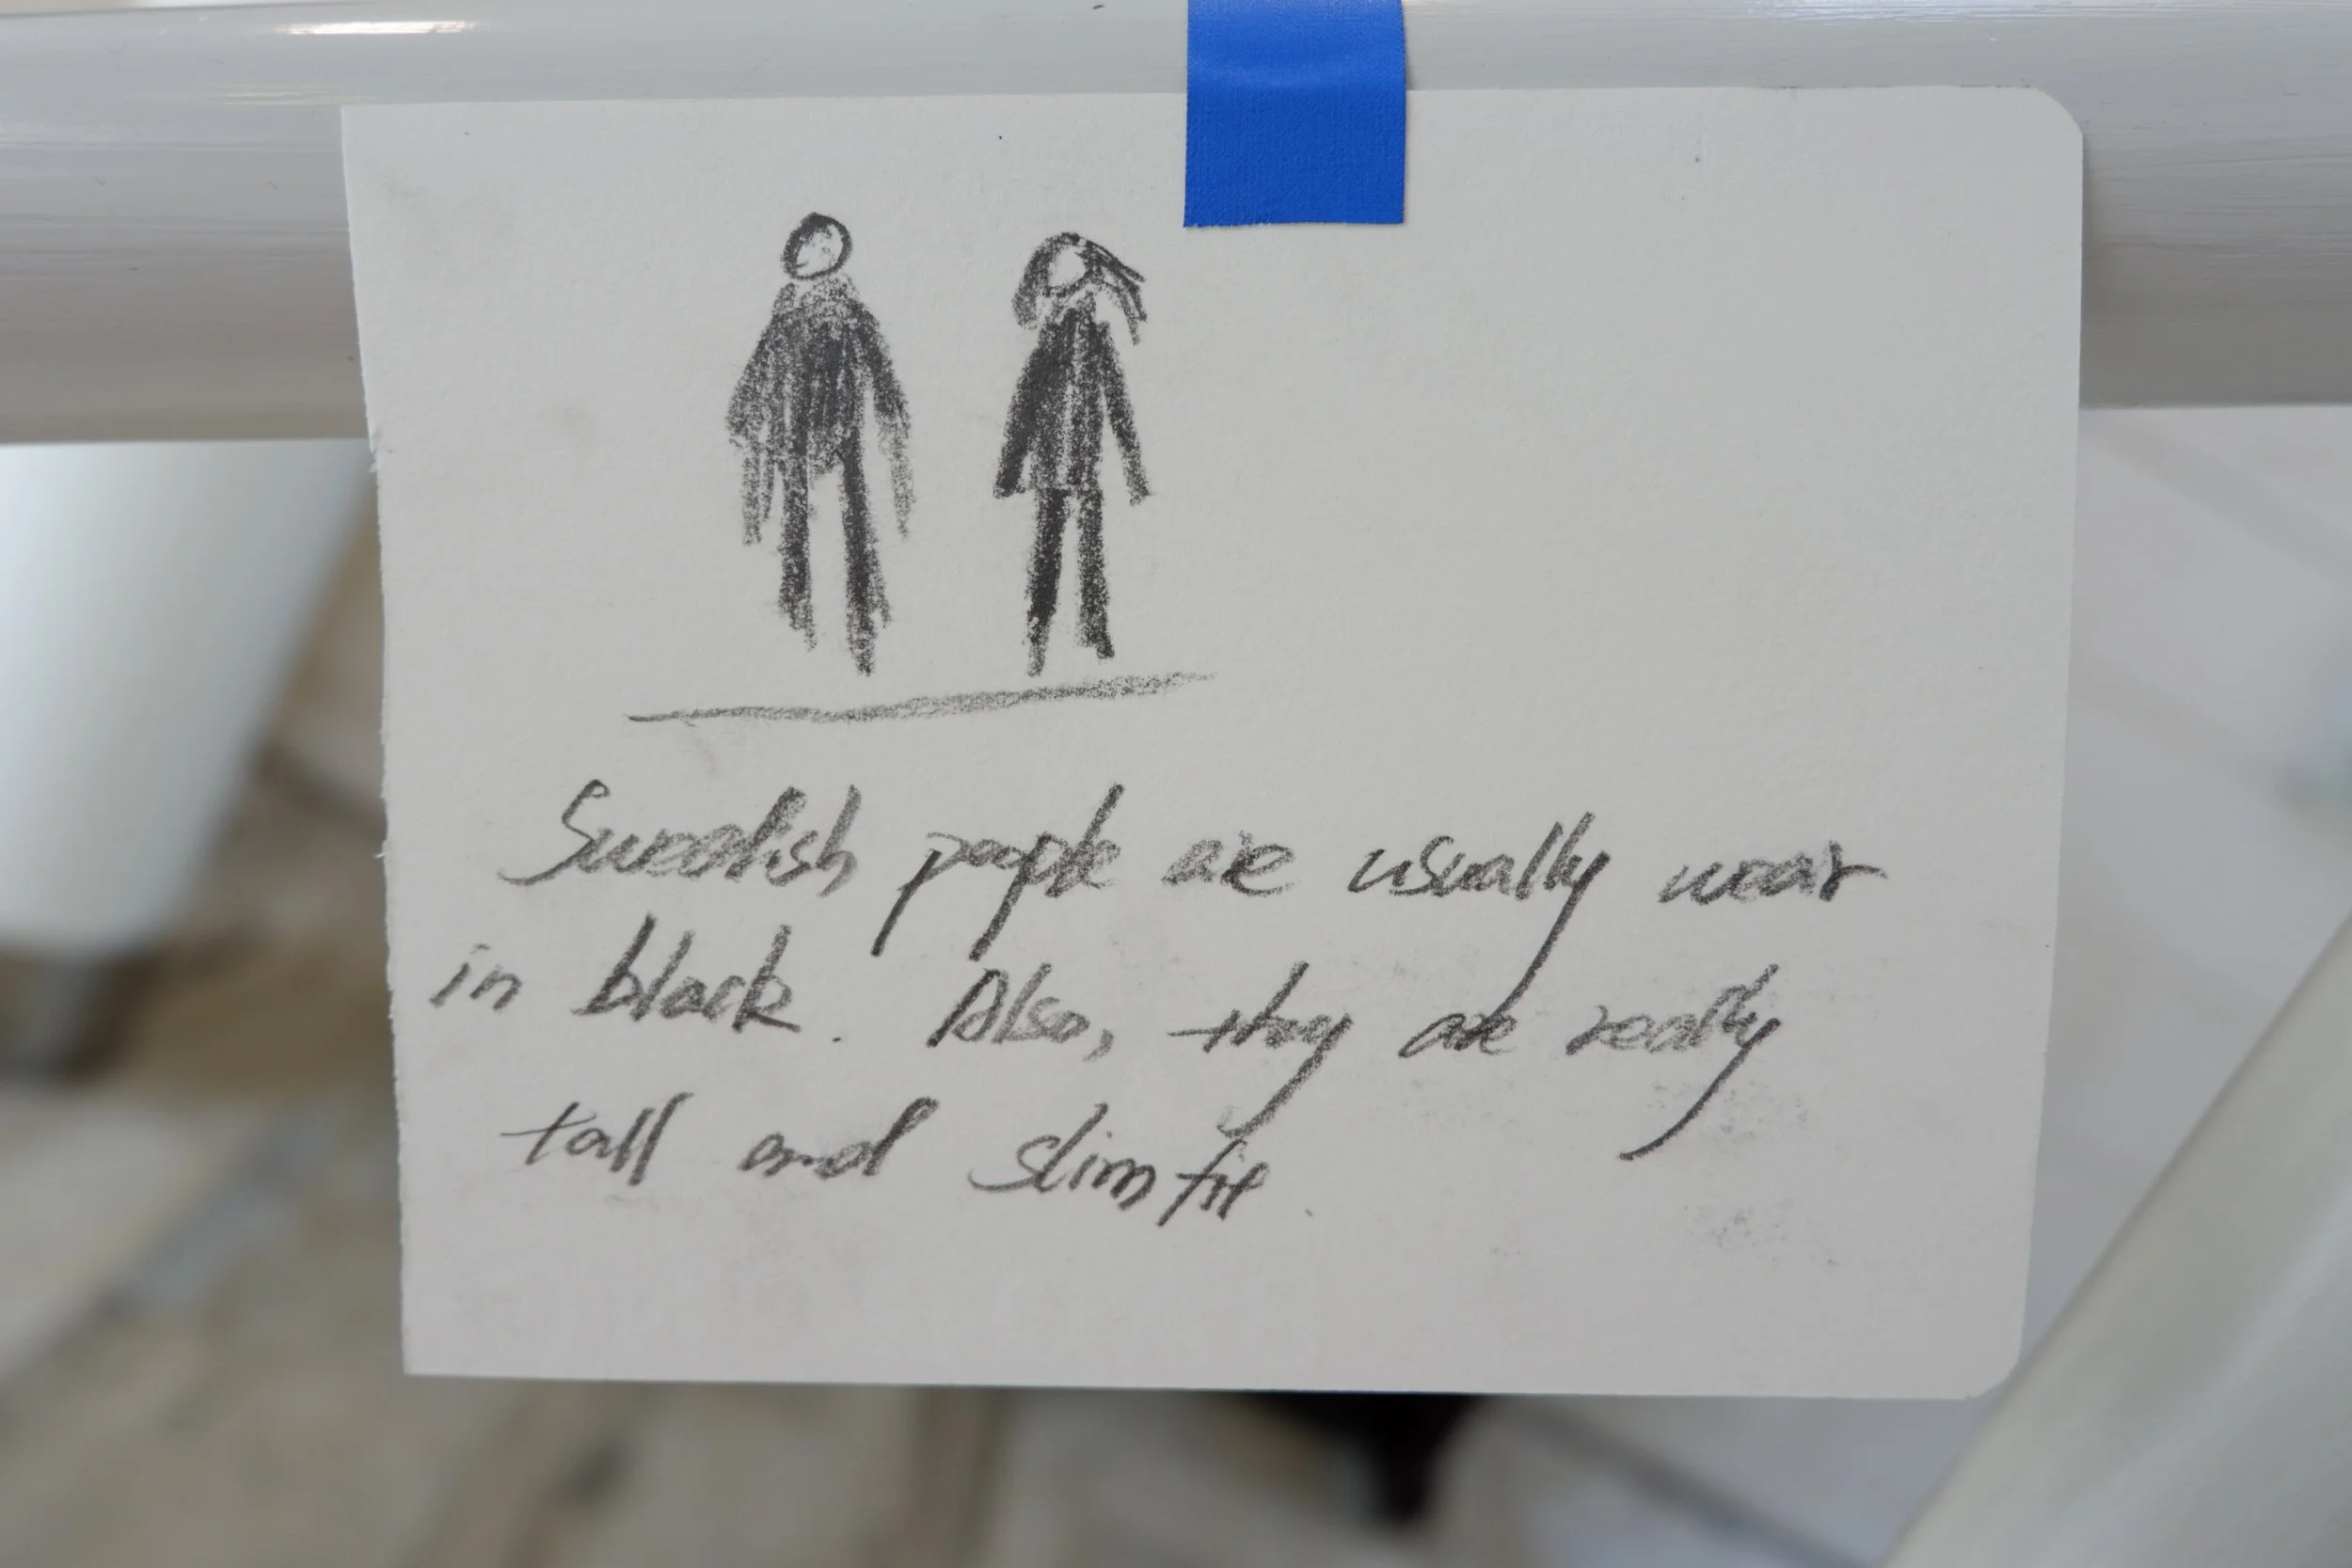 Swedish people are usually wear
in black. Also, they are really
tall and slim fit.